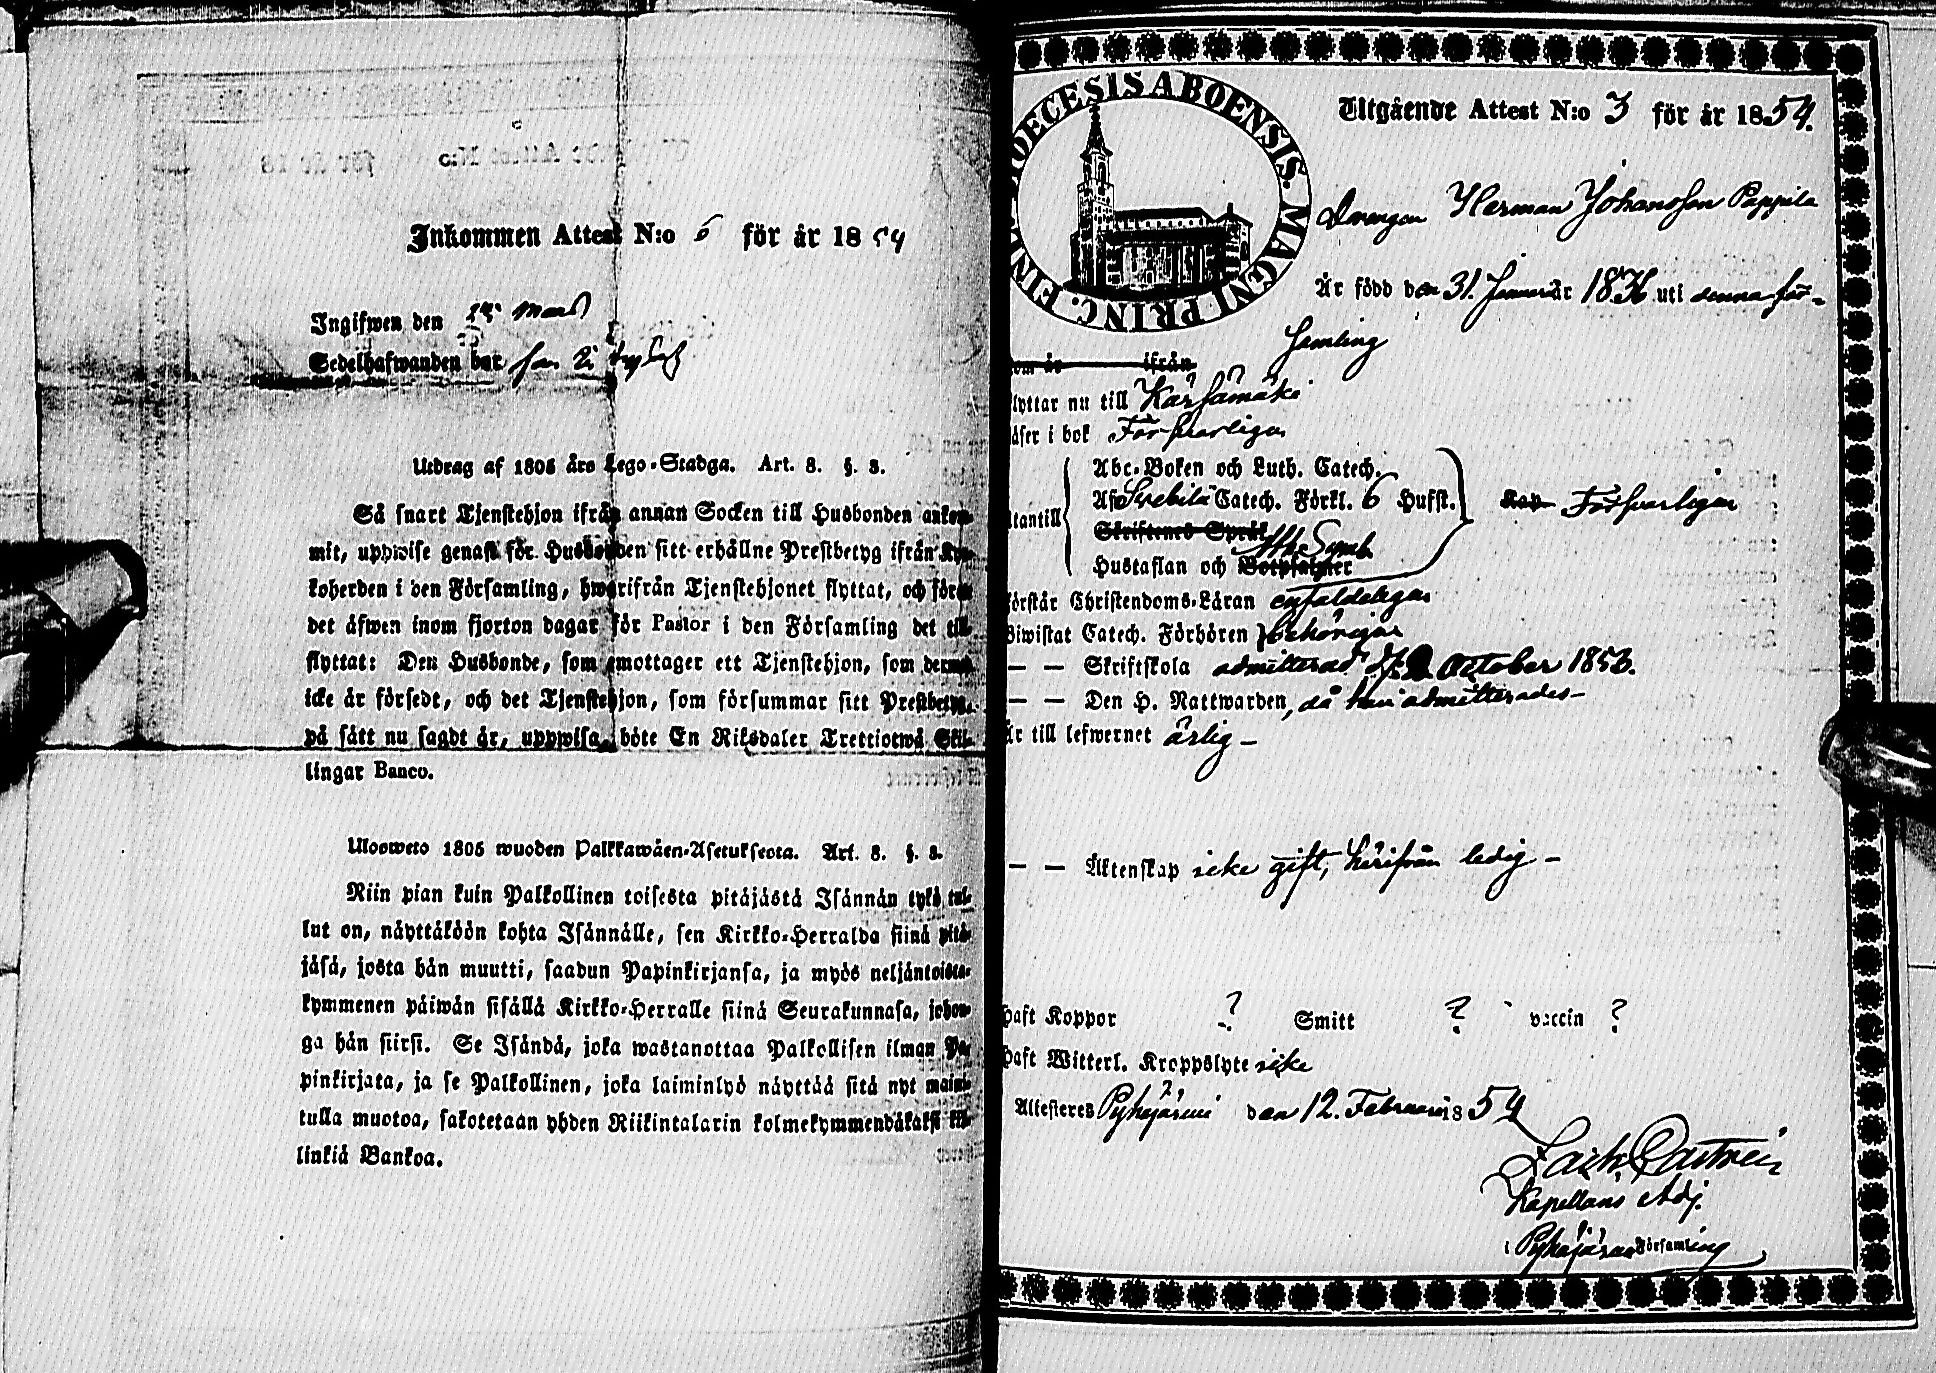 Inkommen Attest N:o 6 för år 1854
Ingifwen den Mars
Sedelhafwanden bar
Utdrag af 1805 års Lego-Stadga. Art. 8. §. 8.
Så snart Tjenstehjon ifrån annan Socken till Husbonden ankom-
mit, uppwise genast för Husbonden sitt erhållne Prestbetyg ifrån Kyr-
koherden i den Församling, hwarifrån Tjenstehjonet flyttat, och förete
det äfwen inom fjorton dagar för Pastor i den Församling det till-
flyttat: Den Husbonde, som emottager ett Tjenstehjon, som dermed
icke är försedt, och det Tjenstehjon, som försummar sitt Prestbetyg,
på sätt nu sagdt är, uppwisa, böte En Riksdaler Trettiotwå Skil-
lingar Banco.
Ulosweto 1805 wuoden Palkkawäen-Asetuksesta. Art. 8. §. 8.
Niin pian kuin Palkollinen toisesta pitäjästä Isännän tykö tul-
lut on, näyttäköön kohta Isännälle, sen Kirkko-Herralda siinä pitä-
jäsä, josta hän muutti, saadun Papinkirjansa, ja myös neljäntoista-
kymmenen päiwän sisällä Kirkko-Herralle siinä Seurakunnasa, johon-
ga hän siirsi. Se Isändä, joka wastanottaa Palkollisen ilman Pa-
pinkirjata, ja se Palkollinen, joka laiminlyö näyttää sitä nyt maini-
tulla muotoa, sakotetaan yhden Riikintalarin kolmekymmendäkaksi kil-
linkiä Bankoa.
DIOECESIS ABOENSIS. MAGNI PRINC. FINL
Utgående Attest N:o 3 för år 1854.
Drengen Herman Johansson Pappila
Är född den 31. Januari år 1836 uti denna För-
samling
om år ifrån
lyttar nu till Kärsämäki
äser i bok Försvarligen
Abc-Boken och Luth. Catech.
Af Svebilii Catech. Förkl. 6 Hufst.
tantill Försvarligen
Skriftenes Språk
Ath. Symb.
Hustaflan och Botpsalmer
örstår Christendoms-Läran enfaldeligen
Biwistat Catech. Förhören behörigen
— — Skriftskola admitterad d. 2 October 1853.
— — Den H. Nattwarden, då han admitterades —
Är till lefwernet ärlig —
— — Äktenskap icke gift, härifrån ledig —
haft Koppor ? Smitt ? vaccin ?
haft Witterl. Kroppslyte icke
Attesteres Pyhäjärvi den 12. Februarii 1854
Castrén
Kapellans Adj.
i Pyhäjärvi Församling